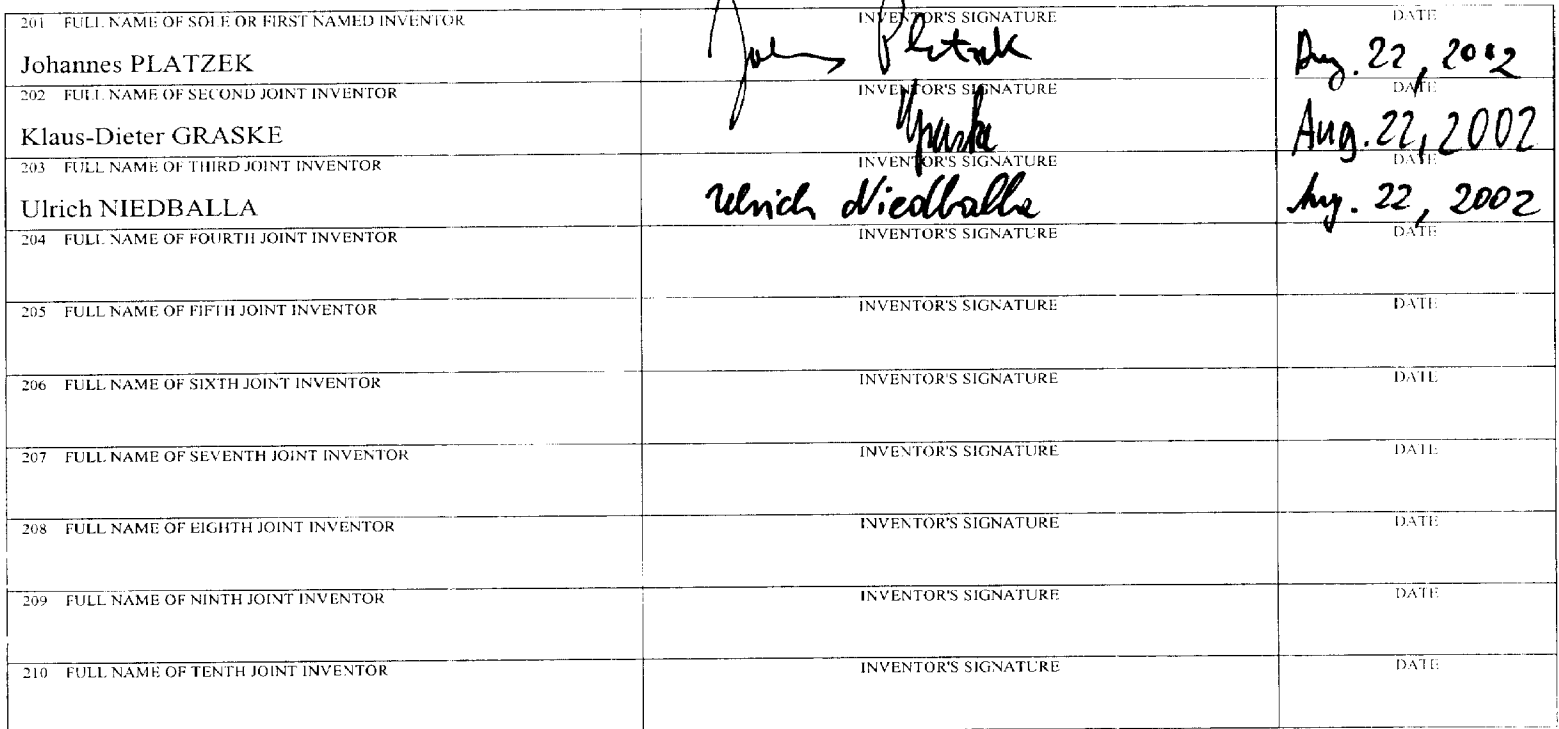 201 FULL NAME OF SOLE OR FIRST NAMED INVENTOR INVENTOR'S SIGNATURE DATE
Johannes PLATZEK Aug. 22, 2002
202 FULL NAME OF SECOND JOINT INVENTOR INVENTOR'S SIGNATURE DATE
Klaus-Dieter GRASKE Graske Aug. 22, 2002
203 FULL NAME OF THIRD JOINT INVENTOR INVENTOR'S SIGNATURE DATE
Ulrich NIEDBALLA Ulrich Niedballa Aug. 22, 2002
204 FULL NAME OF FOURTH JOINT INVENTOR INVENTOR'S SIGNATURE DATE
205 FULL NAME OF FIFTH JOINT INVENTOR INVENTOR'S SIGNATURE DATE
206 FULL NAME OF SIXTH JOINT INVENTOR INVENTOR'S SIGNATURE DATE
207 FULL NAME OF SEVENTH JOINT INVENTOR INVENTOR'S SIGNATURE DATE
208 FULL NAME OF EIGHTH JOINT INVENTOR INVENTOR'S SIGNATURE DATE
209 FULL NAME OF NINTH JOINT INVENTOR INVENTOR'S SIGNATURE DATE
210 FULL NAME OF TENTH JOINT INVENTOR INVENTOR'S SIGNATURE DATE